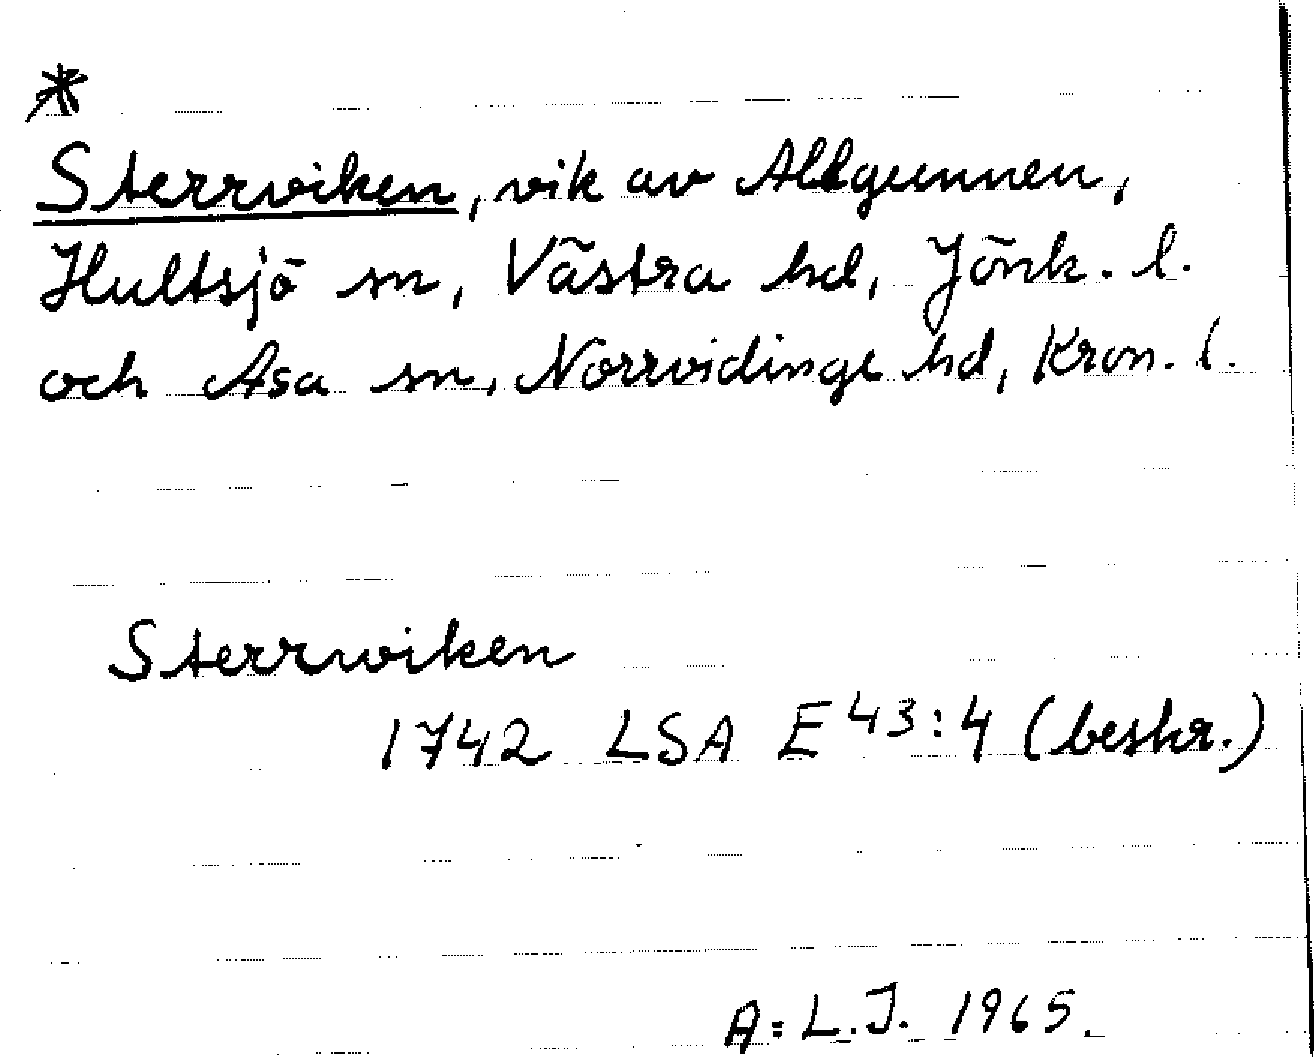 *
Sterrwiken, vik av Allgunnen,
Hultsjö sn, Västra hd, Jönk. l.
och Asa sn, Norrvidinge hd, Kron. l.
Sterrwiken
1742 LSA E 43:4 (beskr.)
A:L.J. 1965.